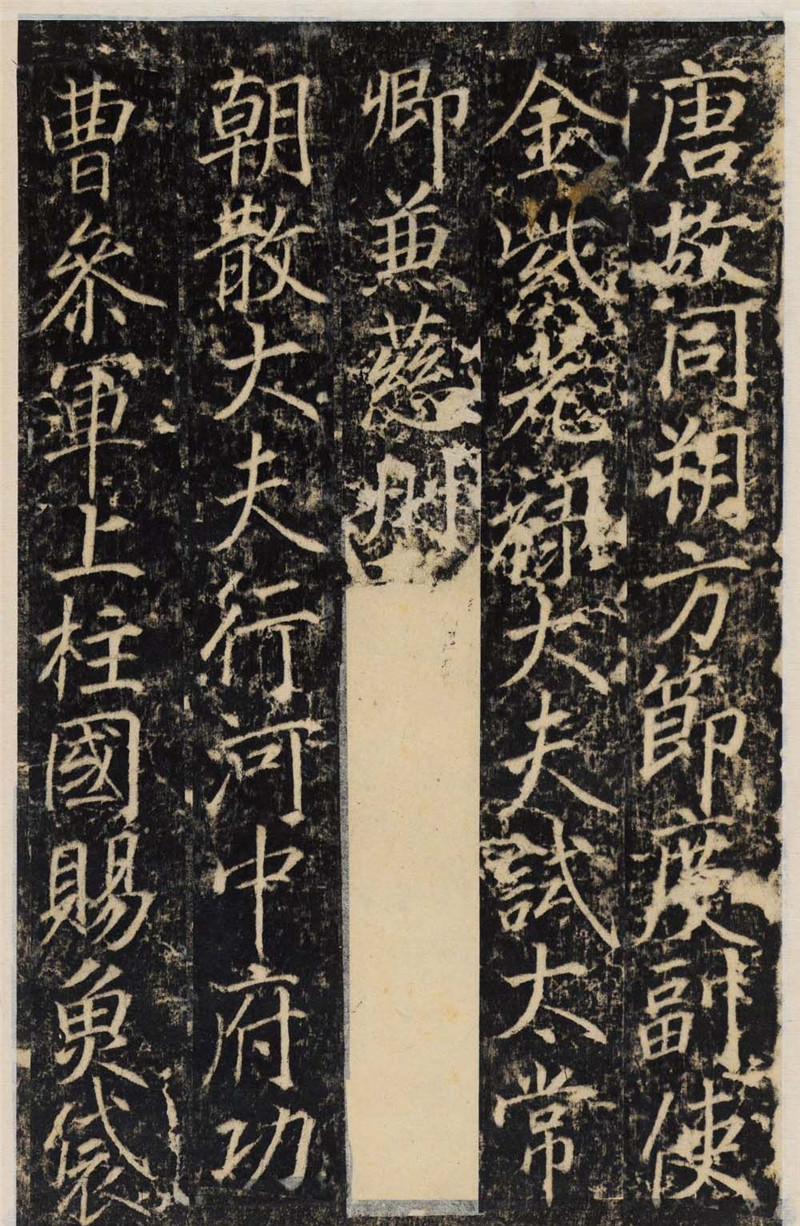 唐故同朔方節度副使
金紫光禄大夫試太常
卿兼慈州
朝散大夫行河中府功
曹叅軍上柱國賜魚袋